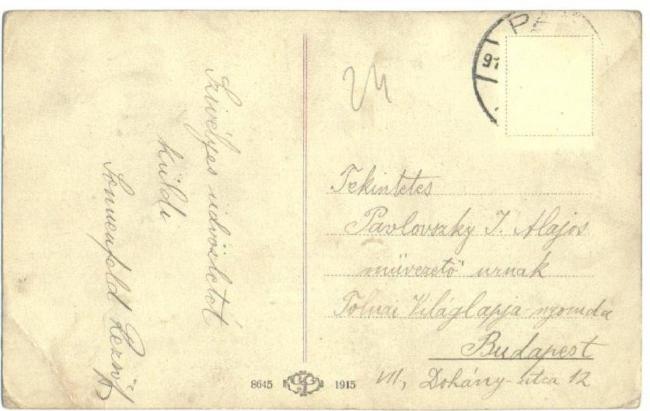 Szivélyes üdvözletét
küldi
Sonnenfeld Rezső
24
Tekintetes
Pavlovszky J. Alajos
művezető urnak
Tolnai Világlapja nyomda
Budapest
VII, Dohány-utca 12
8645 1915